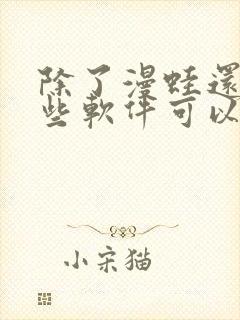 除了漫蛙還
些軟件可以
小宋猫